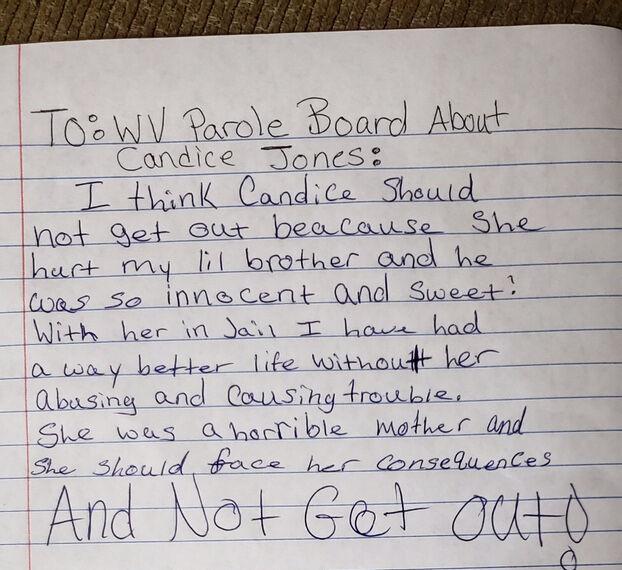 To: WV Parole Board About
Candice Jones:
I think Candice Should
not get out beacause She
hurt my lil brother and he
was so innocent and sweet!
With her in Jail I have had
a way better life without her
abusing and causing trouble.
She was a horrible mother and
She should face her consequences
And Not Get out!